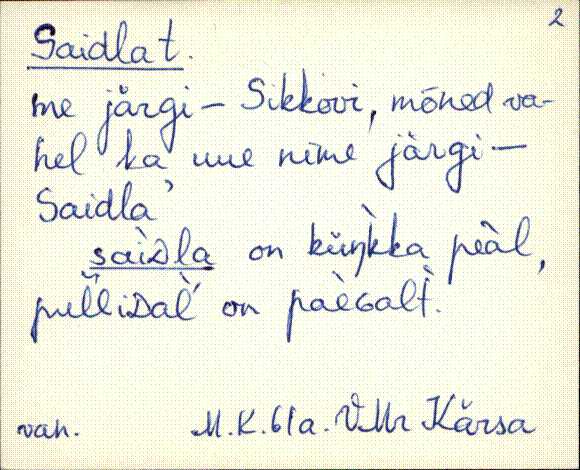 2
Saidla t.
me järgi – Sikkovi, mõned va-
hel ka uue nime järgi –
Saidla'
saìdla on küŋ̀kka peàl,
on paèGalt̀.
van. M.K. 61a. VMr Kärsa